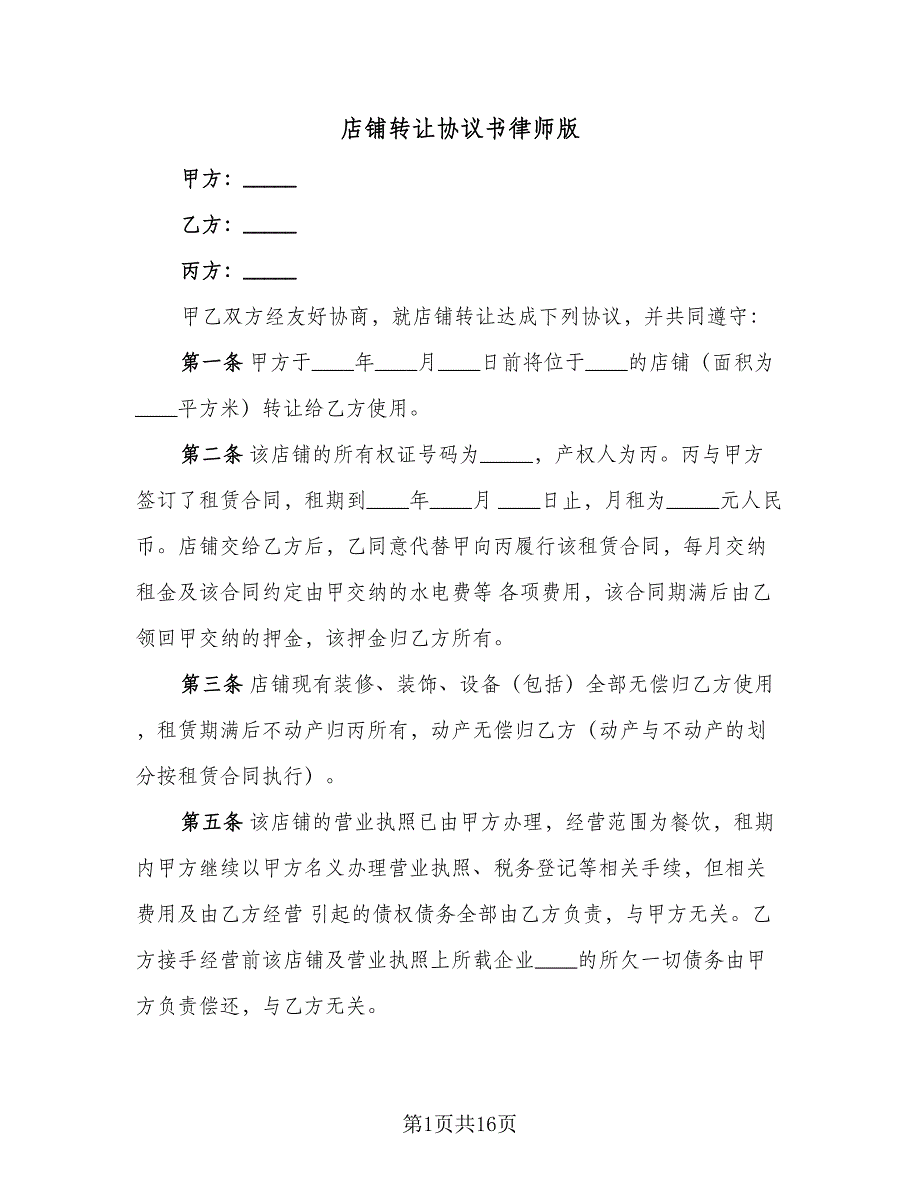 店铺转让协议书律师版
甲方：_____
乙方：_____
丙方：_____
甲乙双方经友好协商，就店铺转让达成下列协议，并共同遵守：
第一条 甲方于____年____月____日前将位于____的店铺（面积为
____平方米）转让给乙方使用。
第二条 该店铺的所有权证号码为_____，产权人为丙。丙与甲方
签订了租赁合同，租期到____年____月 ____日止，月租为_____元人民
币。店铺交给乙方后，乙同意代替甲向丙履行该租赁合同，每月交纳
租金及该合同约定由甲交纳的水电费等 各项费用，该合同期满后由乙
领回甲交纳的押金，该押金归乙方所有。
第三条 店铺现有装修、装饰、设备（包括）全部无偿归乙方使用
，租赁期满后不动产归丙所有，动产无偿归乙方（动产与不动产的划
分按租赁合同执行）。
第五条 该店铺的营业执照已由甲方办理，经营范围为餐饮，租期
内甲方继续以甲方名义办理营业执照、税务登记等相关手续，但相关
费用及由乙方经营 引起的债权债务全部由乙方负责，与甲方无关。乙
方接手经营前该店铺及营业执照上所载企业____的所欠一切债务由甲
方负责偿还，与乙方无关。
第1页共16页